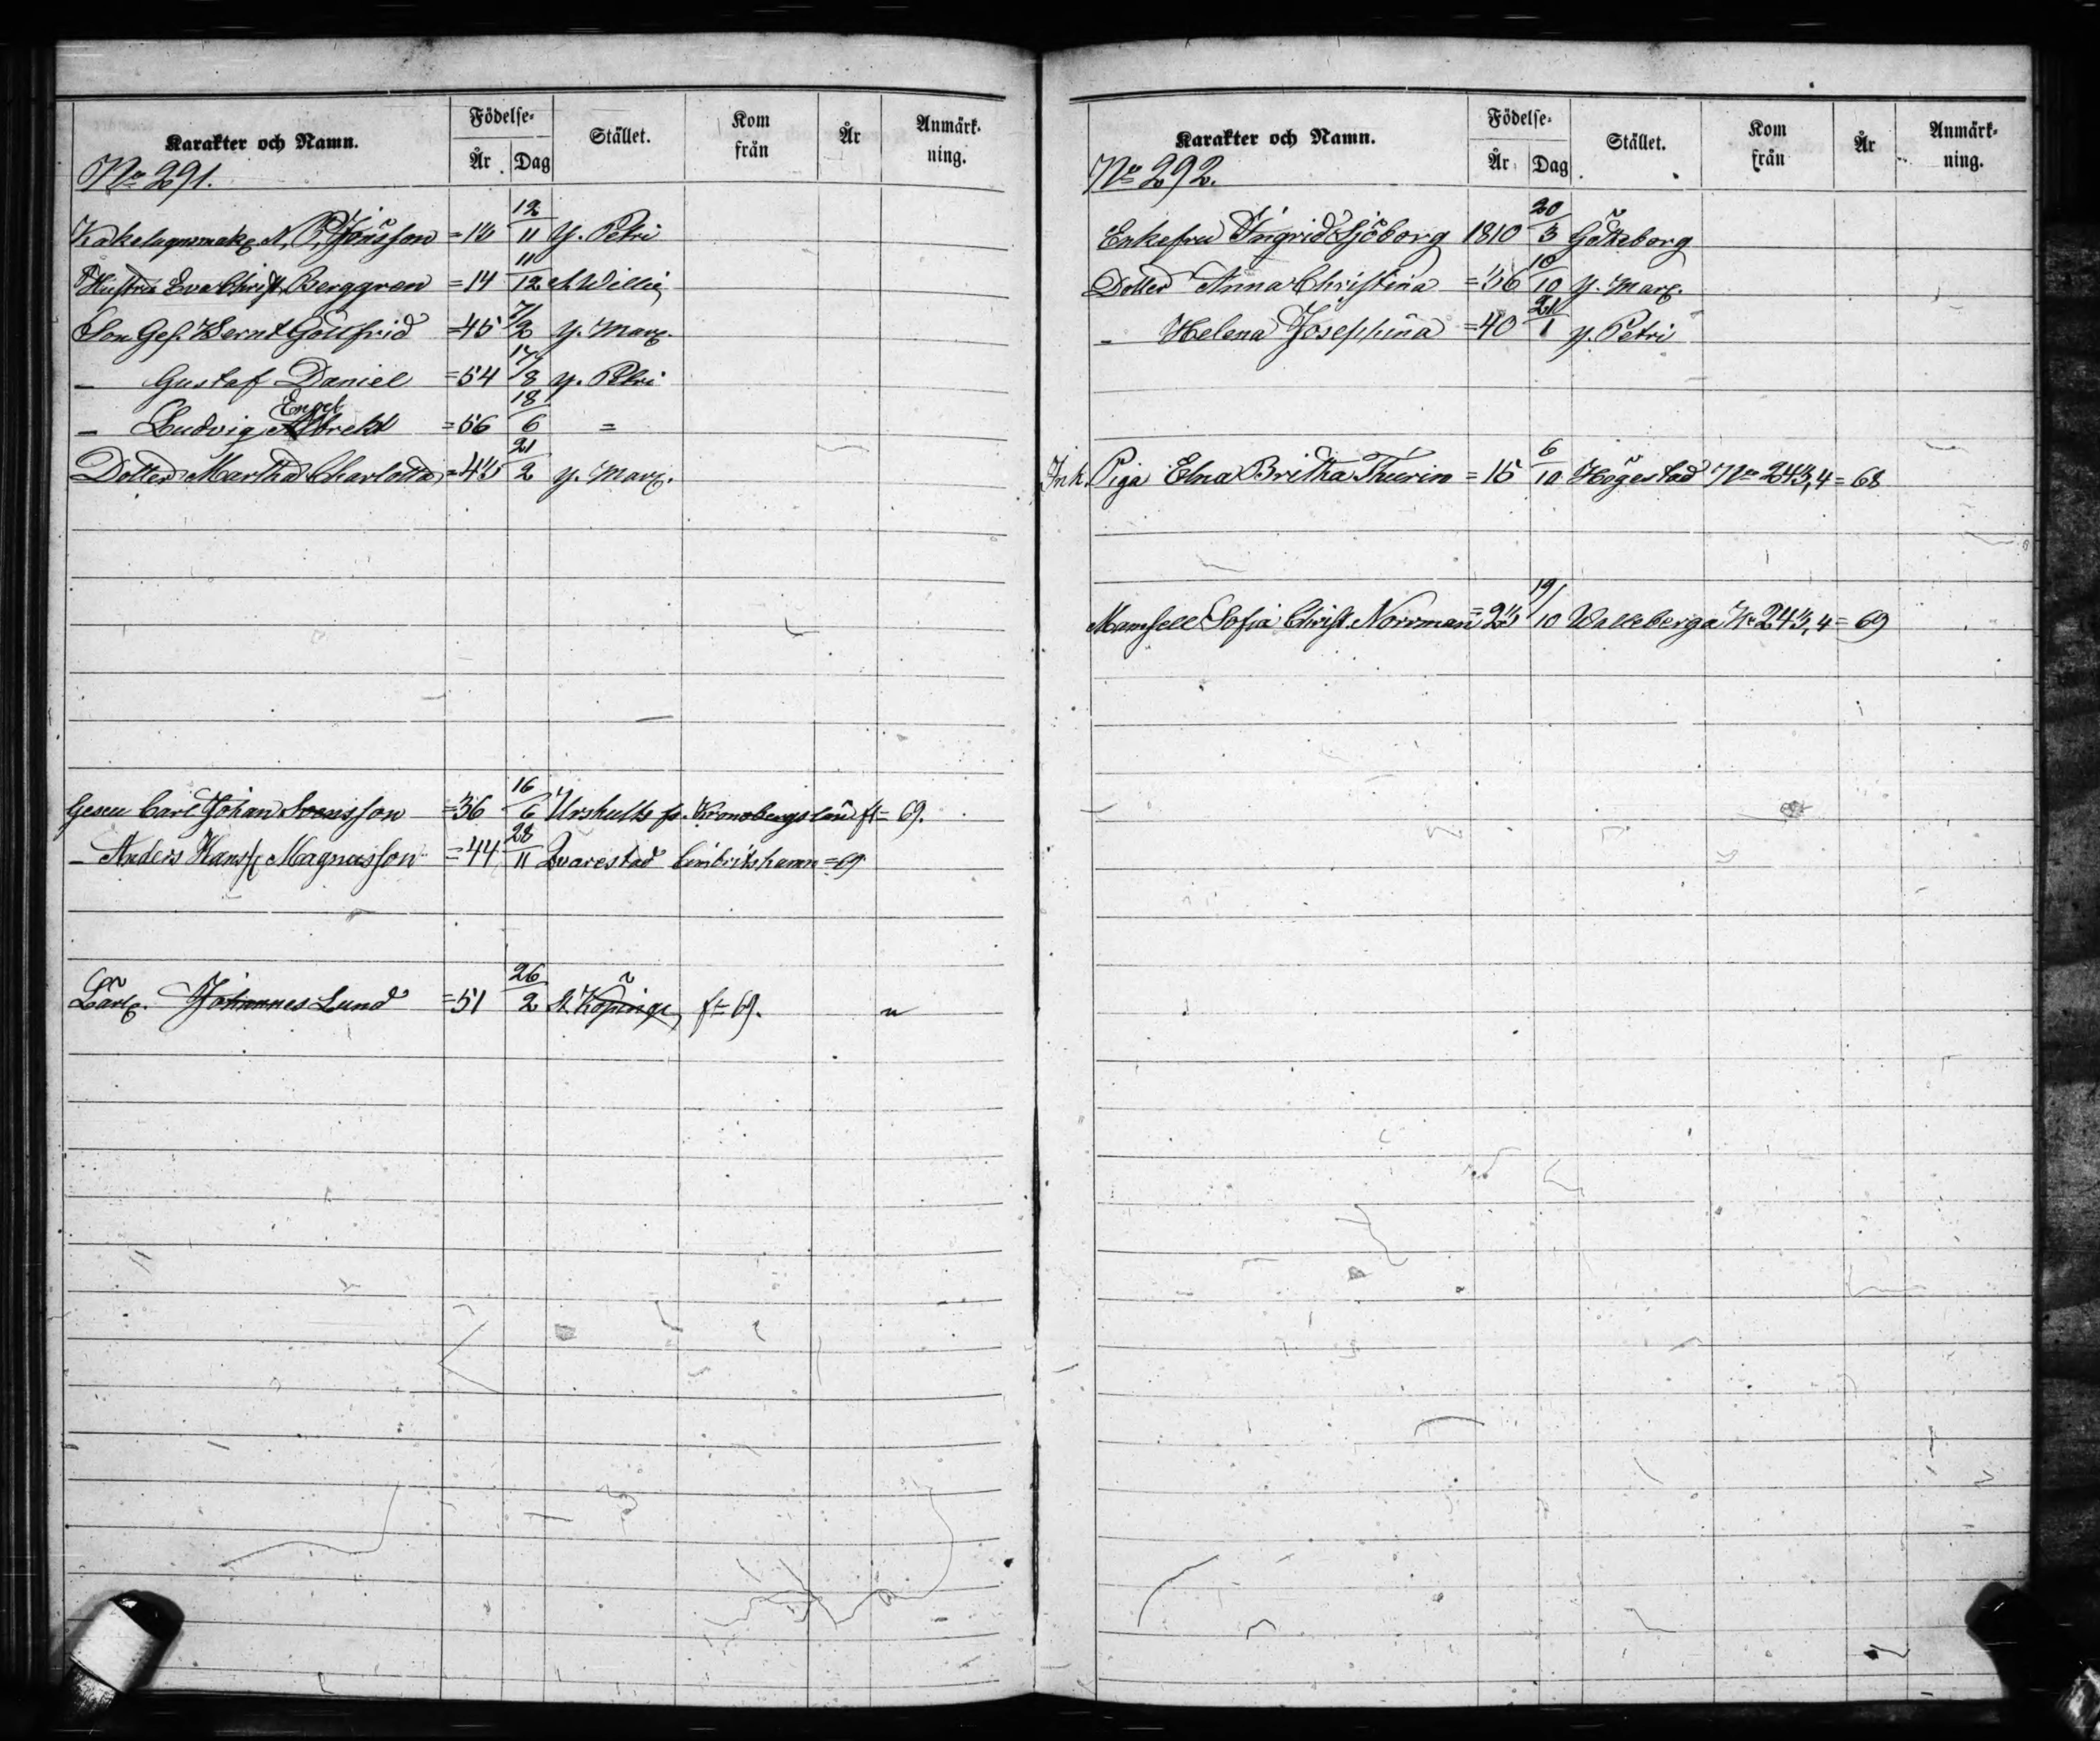 Karakter och Namn. Födelse- År. Dag Stället. Kom från År Anmärk-ning.
No 291.
Kakelugnsmak. N. P. Jönsson =13 12/11 Y. Petri
Hustru Eva Christ. Berggren =14 11/12 St Willie
Son Ges. Bernt Gottfrid =45 7/2 Y. Mar.
— Gustaf Daniel =54 17/8 Y. Petri
Engel
— Ludvig Albrekt =56 18/6 =
Dotter Martha Charlotta =43 21/2 Y. Mar.
Gesen Carl Johan Svensson =36 16/6 Urshults fr. Kronobergs län ft= 69.
— Anders Hanss. Magnusson =44 28/11 Qvarestad Cimbritshamn =69
Lärl. Johannes Lund =51 26/2 St. Köpinge ft= 69.
Karakter och Namn. Födelse- År. Dag Stället. Kom från År Anmärk-ning.
No 292.
Enkefru Ingrid Sjöborg 1810 20/3 Götheborg
Dotter Anna Christina =36 10/10 Y. Mar.
— Helena Josephina =40 21/1 Y. Petri
Ink. Piga Elna Britha Thurin =15 6/10 Högestad No 243,4 = 68
Mamsell Sofia Christ. Norrman =23 19/10 Walleberga No 243,4 = 69